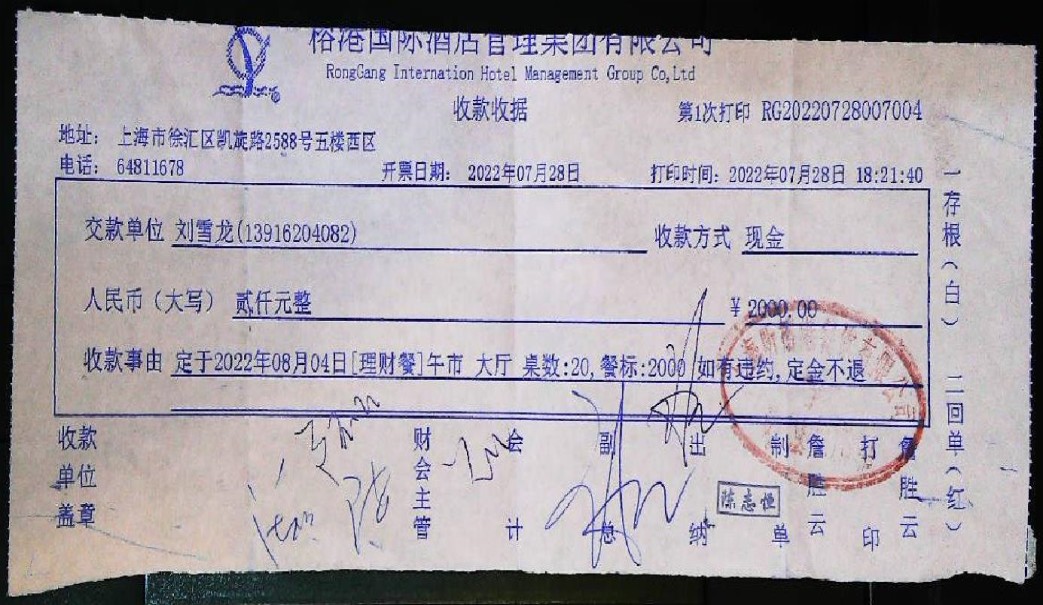 榕港国际酒店管理集团有限公司
RongGang Internation Hotel Management Group Co,Ltd
收款收据
第1次打印 RG20220728007004
地址: 上海市徐汇区凯旋路2588号五楼西区
电话: 64811678 开票日期: 2022年07月28日 打印时间: 2022年07月28日 18:21:40
交款单位 刘雪龙(13916204082) 收款方式 现金
人民币(大写) 贰仟元整 ¥2000.00
收款事由 定于2022年08月04日[理财餐]午市 大厅 桌数:20,餐标:2000 如有违约,定金不退
收款单位盖章
财会主管
会计
副总
出纳
陈志恒
制单
詹胜云
打印
詹胜云
一存根(白) 二回单(红)